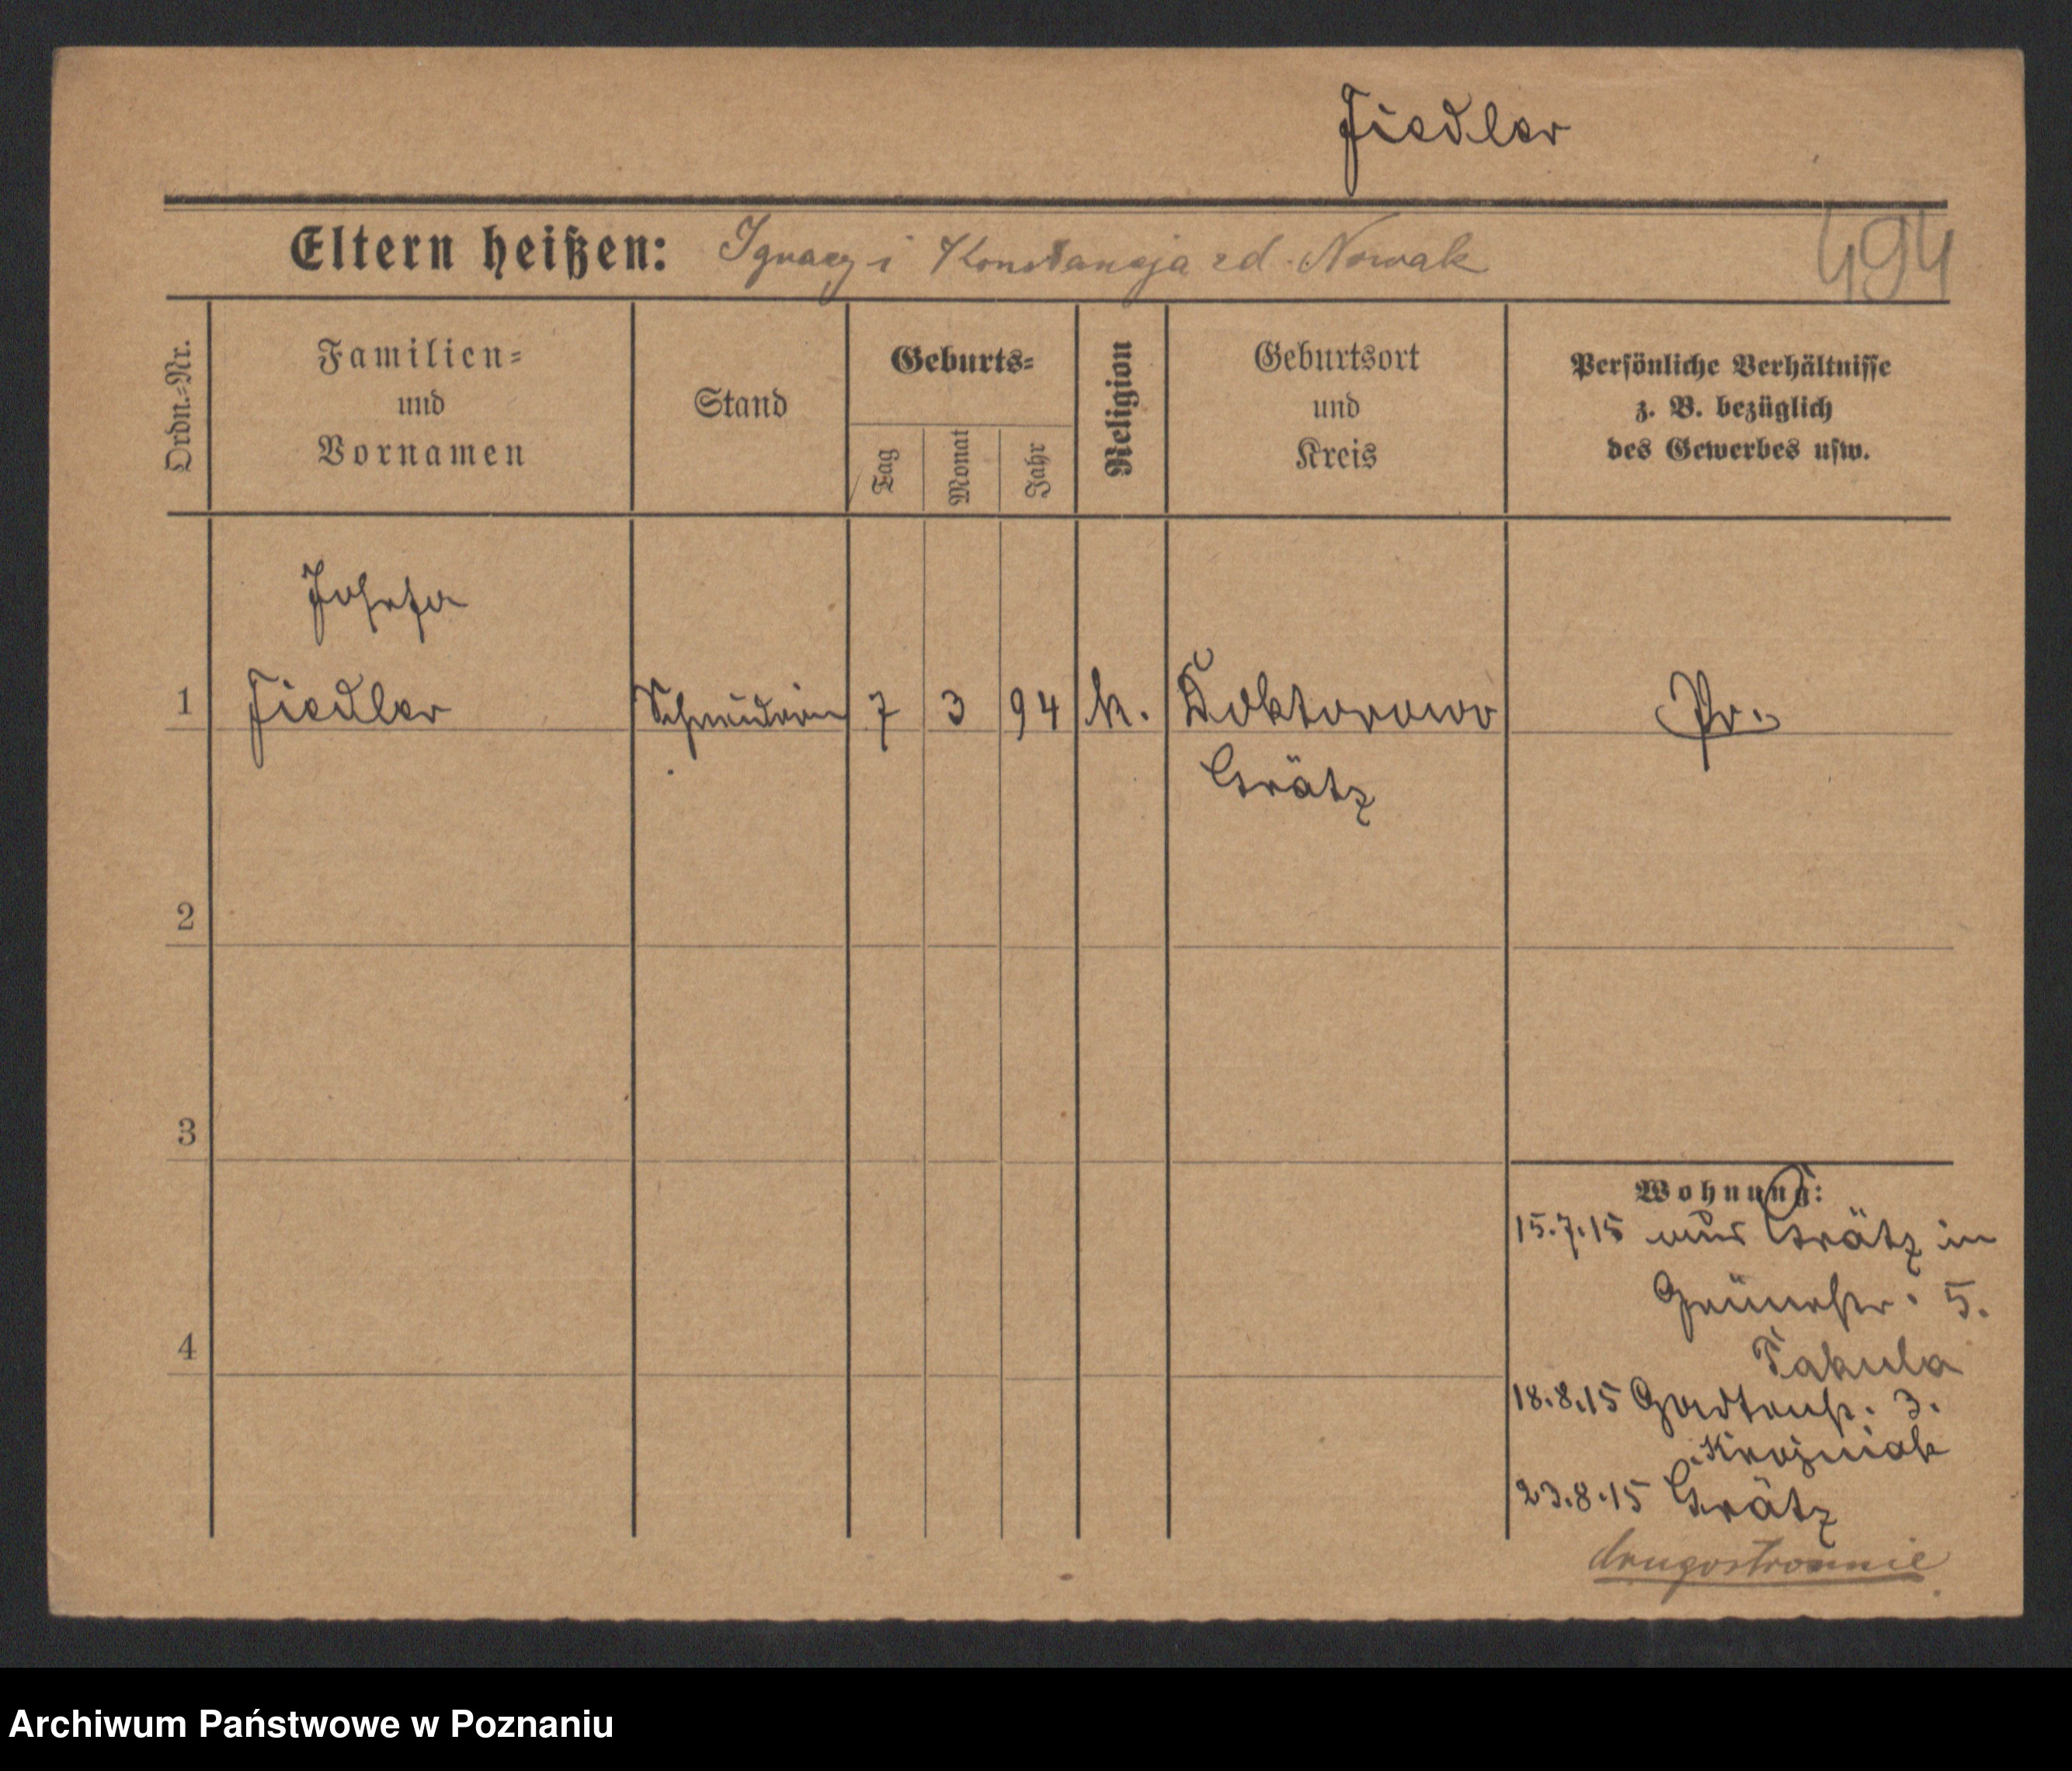 Fiedler
Eltern heißen: Ignacy i Konstancja zd. Nowak 494
Ordn.=Nr.
Familien=
und
Vornamen
Stand
Geburts=
Tag
Monat
Jahr
Religion
Geburtsort
und
Kreis
Persönliche Verhältnisse
z. B. bezüglich
des Gewerbes usw.
Josefa
1 Fiedler Schneiderin 7 3 94 k. Doktorowo Pr.
Grätz
2
3
Wohnung:
15.7.15 aus Grätz in
Grünestr. 5.
Takula
4
18.8.15 Gartenstr. 3.
23.8.15 Grätz
drugostronnie
Archiwum Państwowe w Poznaniu